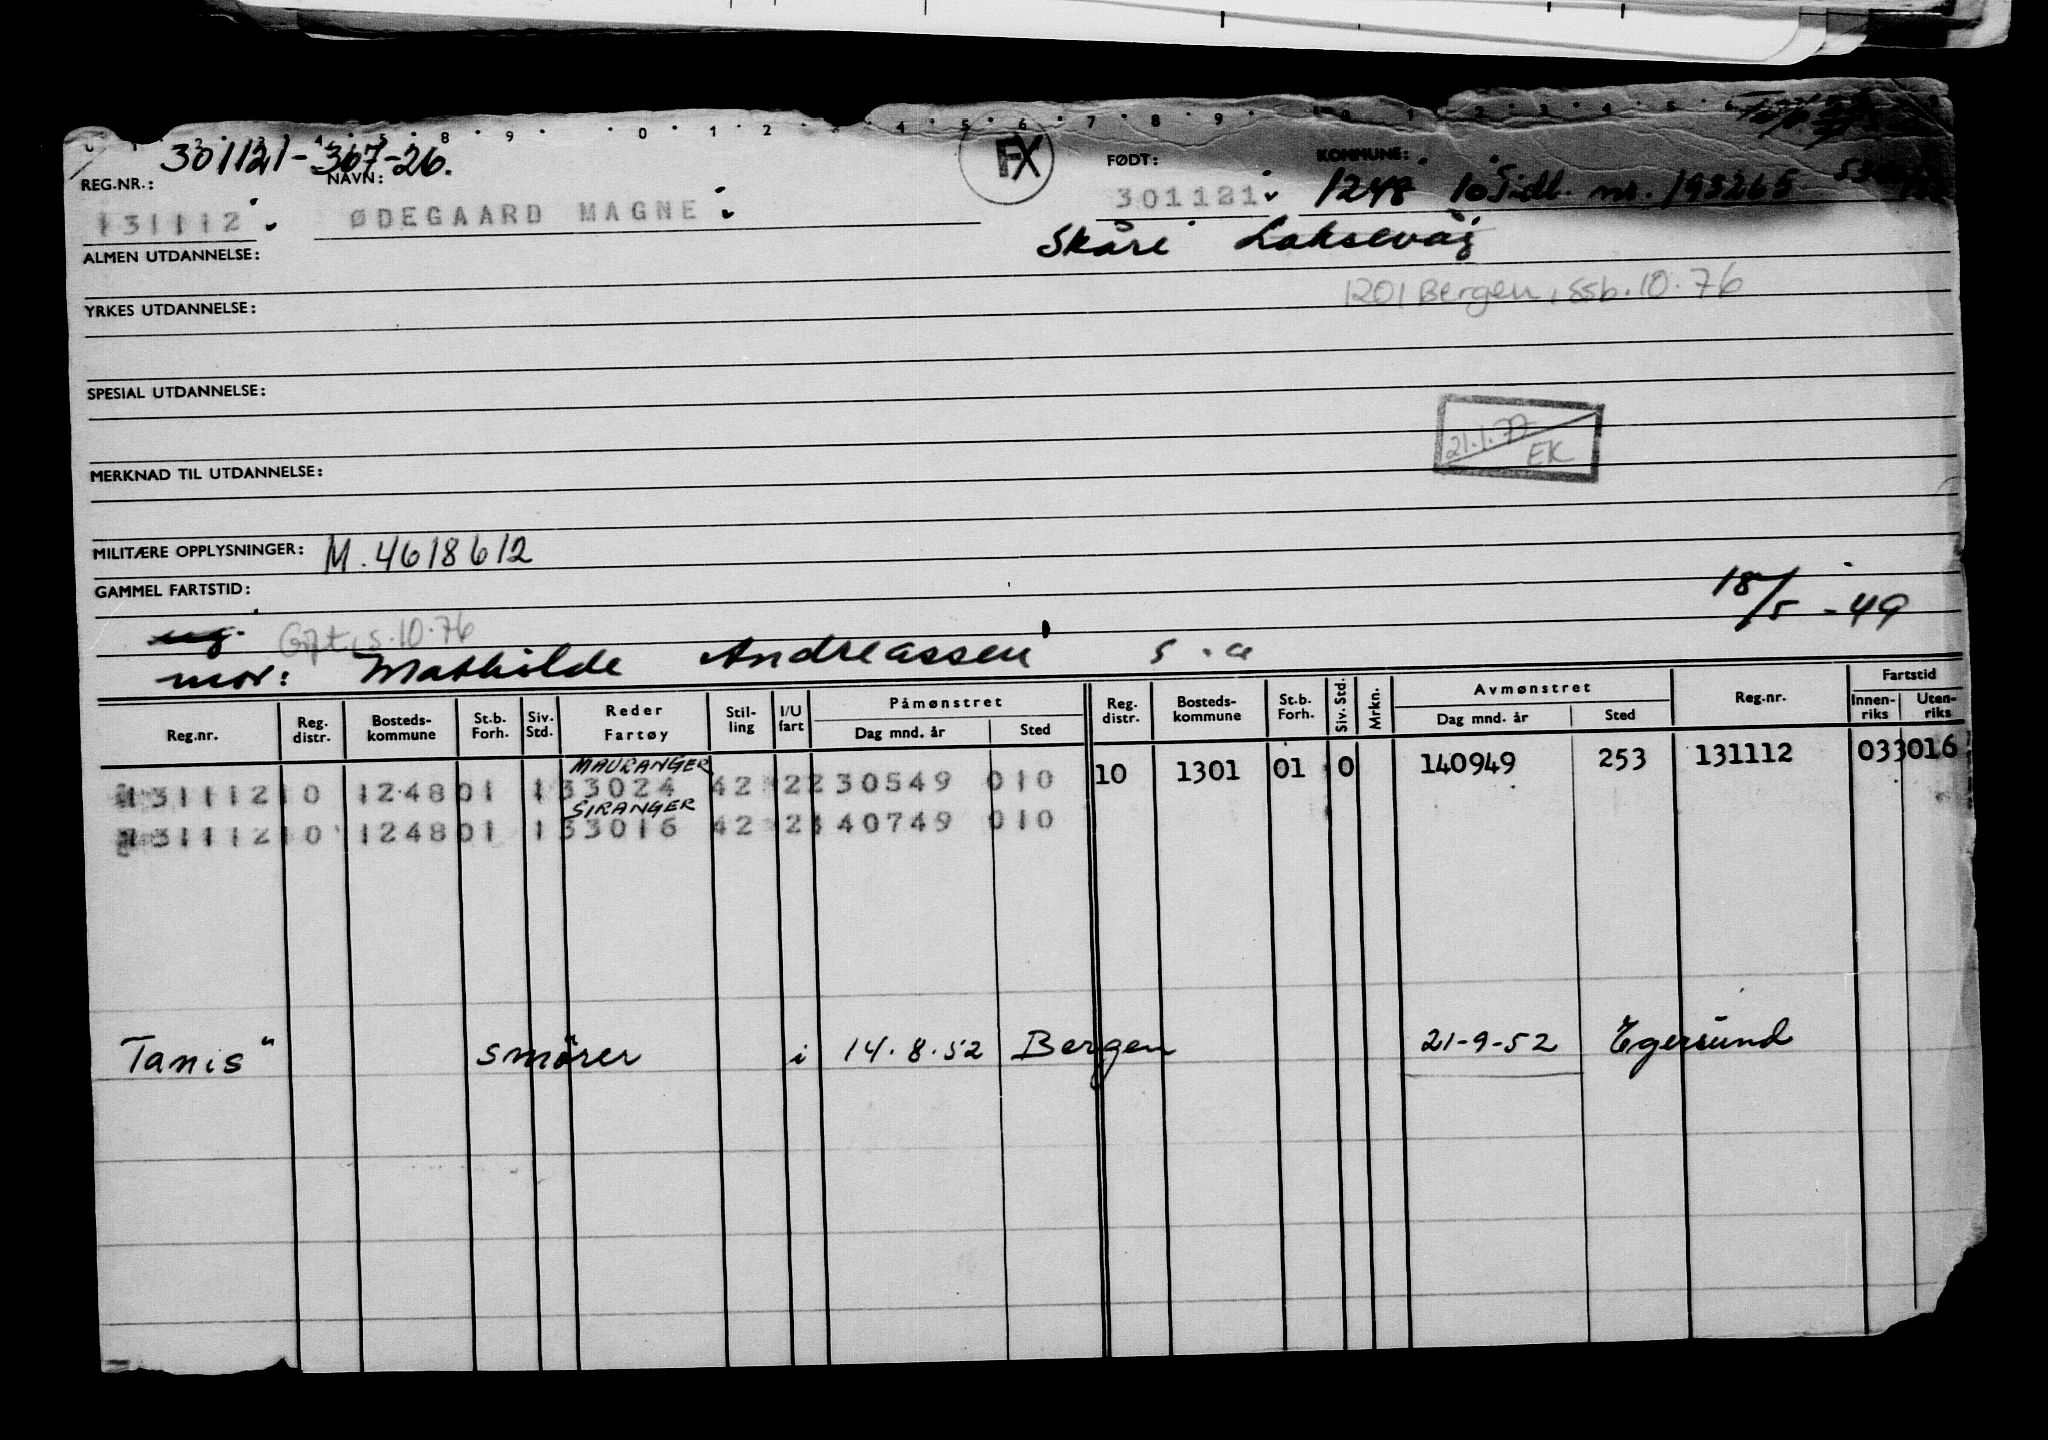 301121-367-26.
FX
REG.NR.: NAVN: FØDT: KOMMUNE:
131112 ØDEGAARD MAGNE 301121 1248 10 Sidl. nr. 193265
Skåre Laksevåg
ALMEN UTDANNELSE:
1201 Bergen, ssb. 10.76
YRKES UTDANNELSE:
SPESIAL UTDANNELSE:
21.1.77
EK
MERKNAD TIL UTDANNELSE:
MILITÆRE OPPLYSNINGER: M. 4618612
GAMMEL FARTSTID:
18/5 -49
ug. Gift, s. 10.76
mor: Mathilde Andreassen s.a
Reg.nr. Reg. distr. Bosteds-kommune St.b. Forh. Siv. Std. Reder Fartøy Stil-ling I/U fart Påmønstret Dag mnd. år Sted Reg. distr. Bosteds-kommune St.b. Forh. Siv. Std. Mrkn. Avmønstret Dag mnd. år Sted Reg.nr. Fartstid Innen-riks Uten-riks
MAURANGER
131112 10 1248 01 1 33024 42 2 230549 010 10 1301 01 0 140949 253 131112 033016
SIRANGER
131112 10 1248 01 1 33016 42 2 140749 010
Tanis" smörer i 14.8.52 Bergen 21-9-52 Egersund